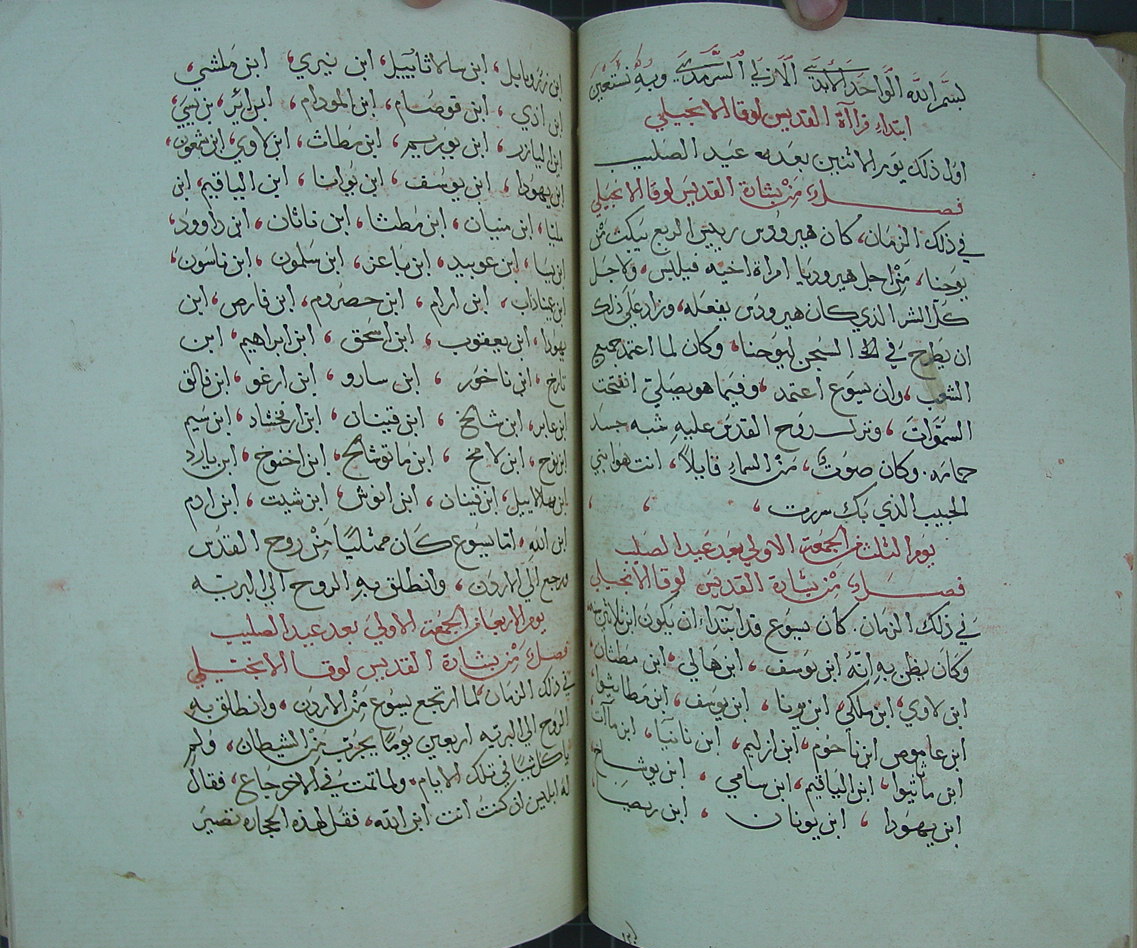 بسم الله الواحد الابدي الازلي السرمدي وبه نستعين
ابتداء قراآة القديس لوقا الانجيلي
اول ذلك يوم الاثنين بعد عيد الصليب
فصل من بشارة القديس لوقا الانجيلي
في ذلك الزمان، كان هيرودس رييس الربع يبكت من
يوحنا، من اجل هيروديا امراة اخيه فيلبس، ولاجل
كل الشر الذي كان هيرودس يفعله، وزاد على ذلك
ان يطرح في السجن ليوحنا، وكان لما اعتمد جميع
الشعب، وان يسوع اعتمد، وفيما هو يصلي انفتحت
السموات، ونزل روح القدس عليه شبه جسد
حمامه. وكان صوت، من السماء قايلا، انت هو ابني
الحبيب الذي بك سررت،
يوم الثلث من الجمعة الاولي بعد عيد الصليب
فصل من بشارة القديس لوقا الانجيلي
في ذلك الزمان. كان يسوع قد ابتدا ان يكون ابن ثلاثين سنه
وكان يظن به انه ابن يوسف، ابن هالي، ابن مطثان
ابن لاوي، ابن ملكي، ابن يونا، ابن يوسف، ابن مطاثيوا،
ابن عاموص ابن ناحوم، ابن ازليم، ابن نانتيا، ابن ماآت
ابن ماثيوا، ابن الياقيم، ابن سامي، ابن يوشاح
ابن يهودا، ابن يونان، ابن ريصا
ابن زروبابل، ابن سالاثاييل، ابن نيري، ابن ملشي،
ابن ادي، ابن قوصام، ابن المودام، ابن ائر، بن يسي
ابن اليازر، ابن يوريم، ابن مطاث، ابن لاوي، ابن شمعون،
ابن يهودا، ابن يوسف، ابن يوانا، ابن الياقيم، ابن
ملثا، ابن منيان، ابن مطثا، ابن ناثان، ابن داوود،
ابن يسا، ابن عوبيد، ابن باعز، ابن سلمون، ابن ناسون،
ابن عيناداب، ابن ارام، ابن حصروم، ابن فارص، ابن
يهودا، ابن يعقوب، ابن اسحق، ابن ابراهيم، ابن
تارح، ابن ناخور، ابن سارو، ابن ارغو، ابن فالق
ابن عابر، ابن شالخ، ابن قينان، ابن ارفخشاد، ابن سيم
ابن نوح، ابن لامخ، ابن ماتوشالح، ابن اخنوح، ابن يارد
ابن مهلاليل، ابن قينان، ابن انوش، ابن شيت، ابن ادم
ابن الله، اما يسوع كان ممتليا من روح القدس
فرجع الي الاردن، وانطلق به الروح الي البريه
يوم الاربعا من الجمعة الاولي بعد عيد الصليب
فصل من بشارة القديس لوقا الانجيلي
في ذلك الزمان لما ارتجع يسوع من الاردن، وانطلق به
الروح الي البريه اربعين يوما يجرب من الشيطان، ولم
ياكل شيا في تلك الايام، ولما تمت في الاخر جاع، فقال
له ابليس ان كنت انت ابن الله، فقل لهذه الحجاره تصير